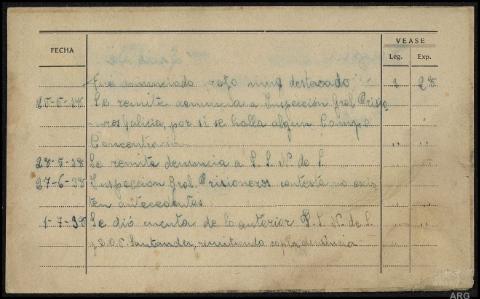 VEASE
FECHA Leg. Exp.
Fué denunciado rojo muy destacado 2
25-5-38 Se remite denuncia a Inspección Gral. Prisio-
ros Galicia, por si se halla algún Campo
Concentración
28-5-38 Se remite denuncia a S. N. de S.
27-6-38 Inspección Gral. Prisioneros contesta no exis
ten antecedentes
1-7-38 Se dió cuenta de lo anterior S. N. de S.
y D.O.P. Santander, remitiendo copia denuncia
ARG